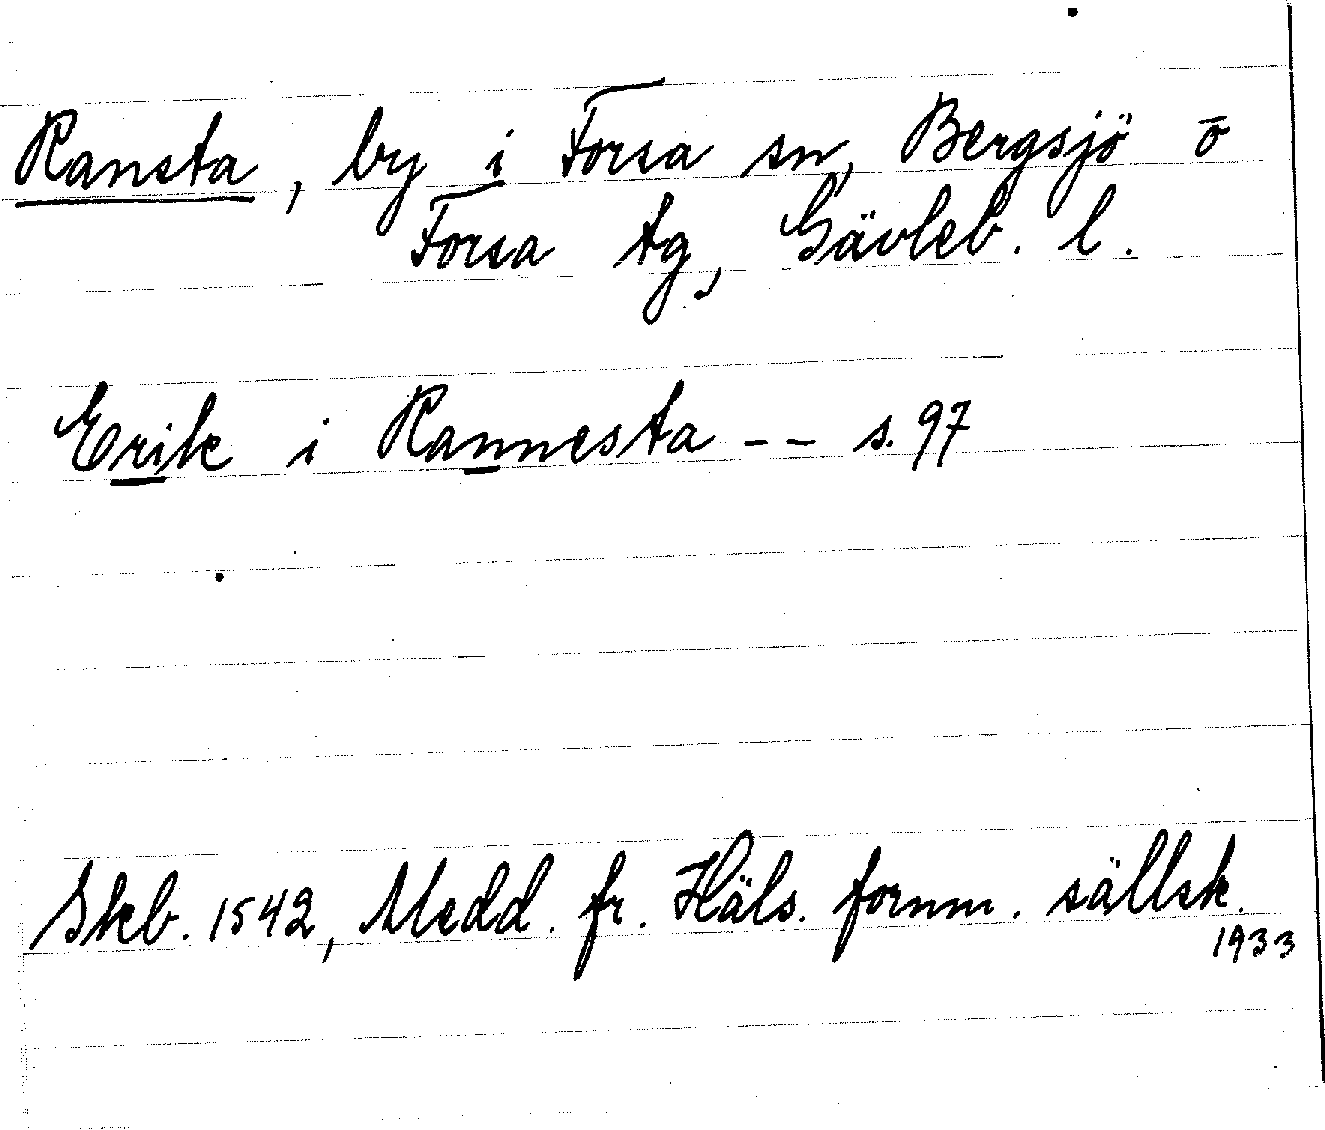 Ransta, by i Forsa sn, Bergsjö o
Forsa tg, Gävleb. l.
Erik i Rannesta -- s. 97
Skb. 1542, Medd. fr. Häls. fornm. sällsk.
1933